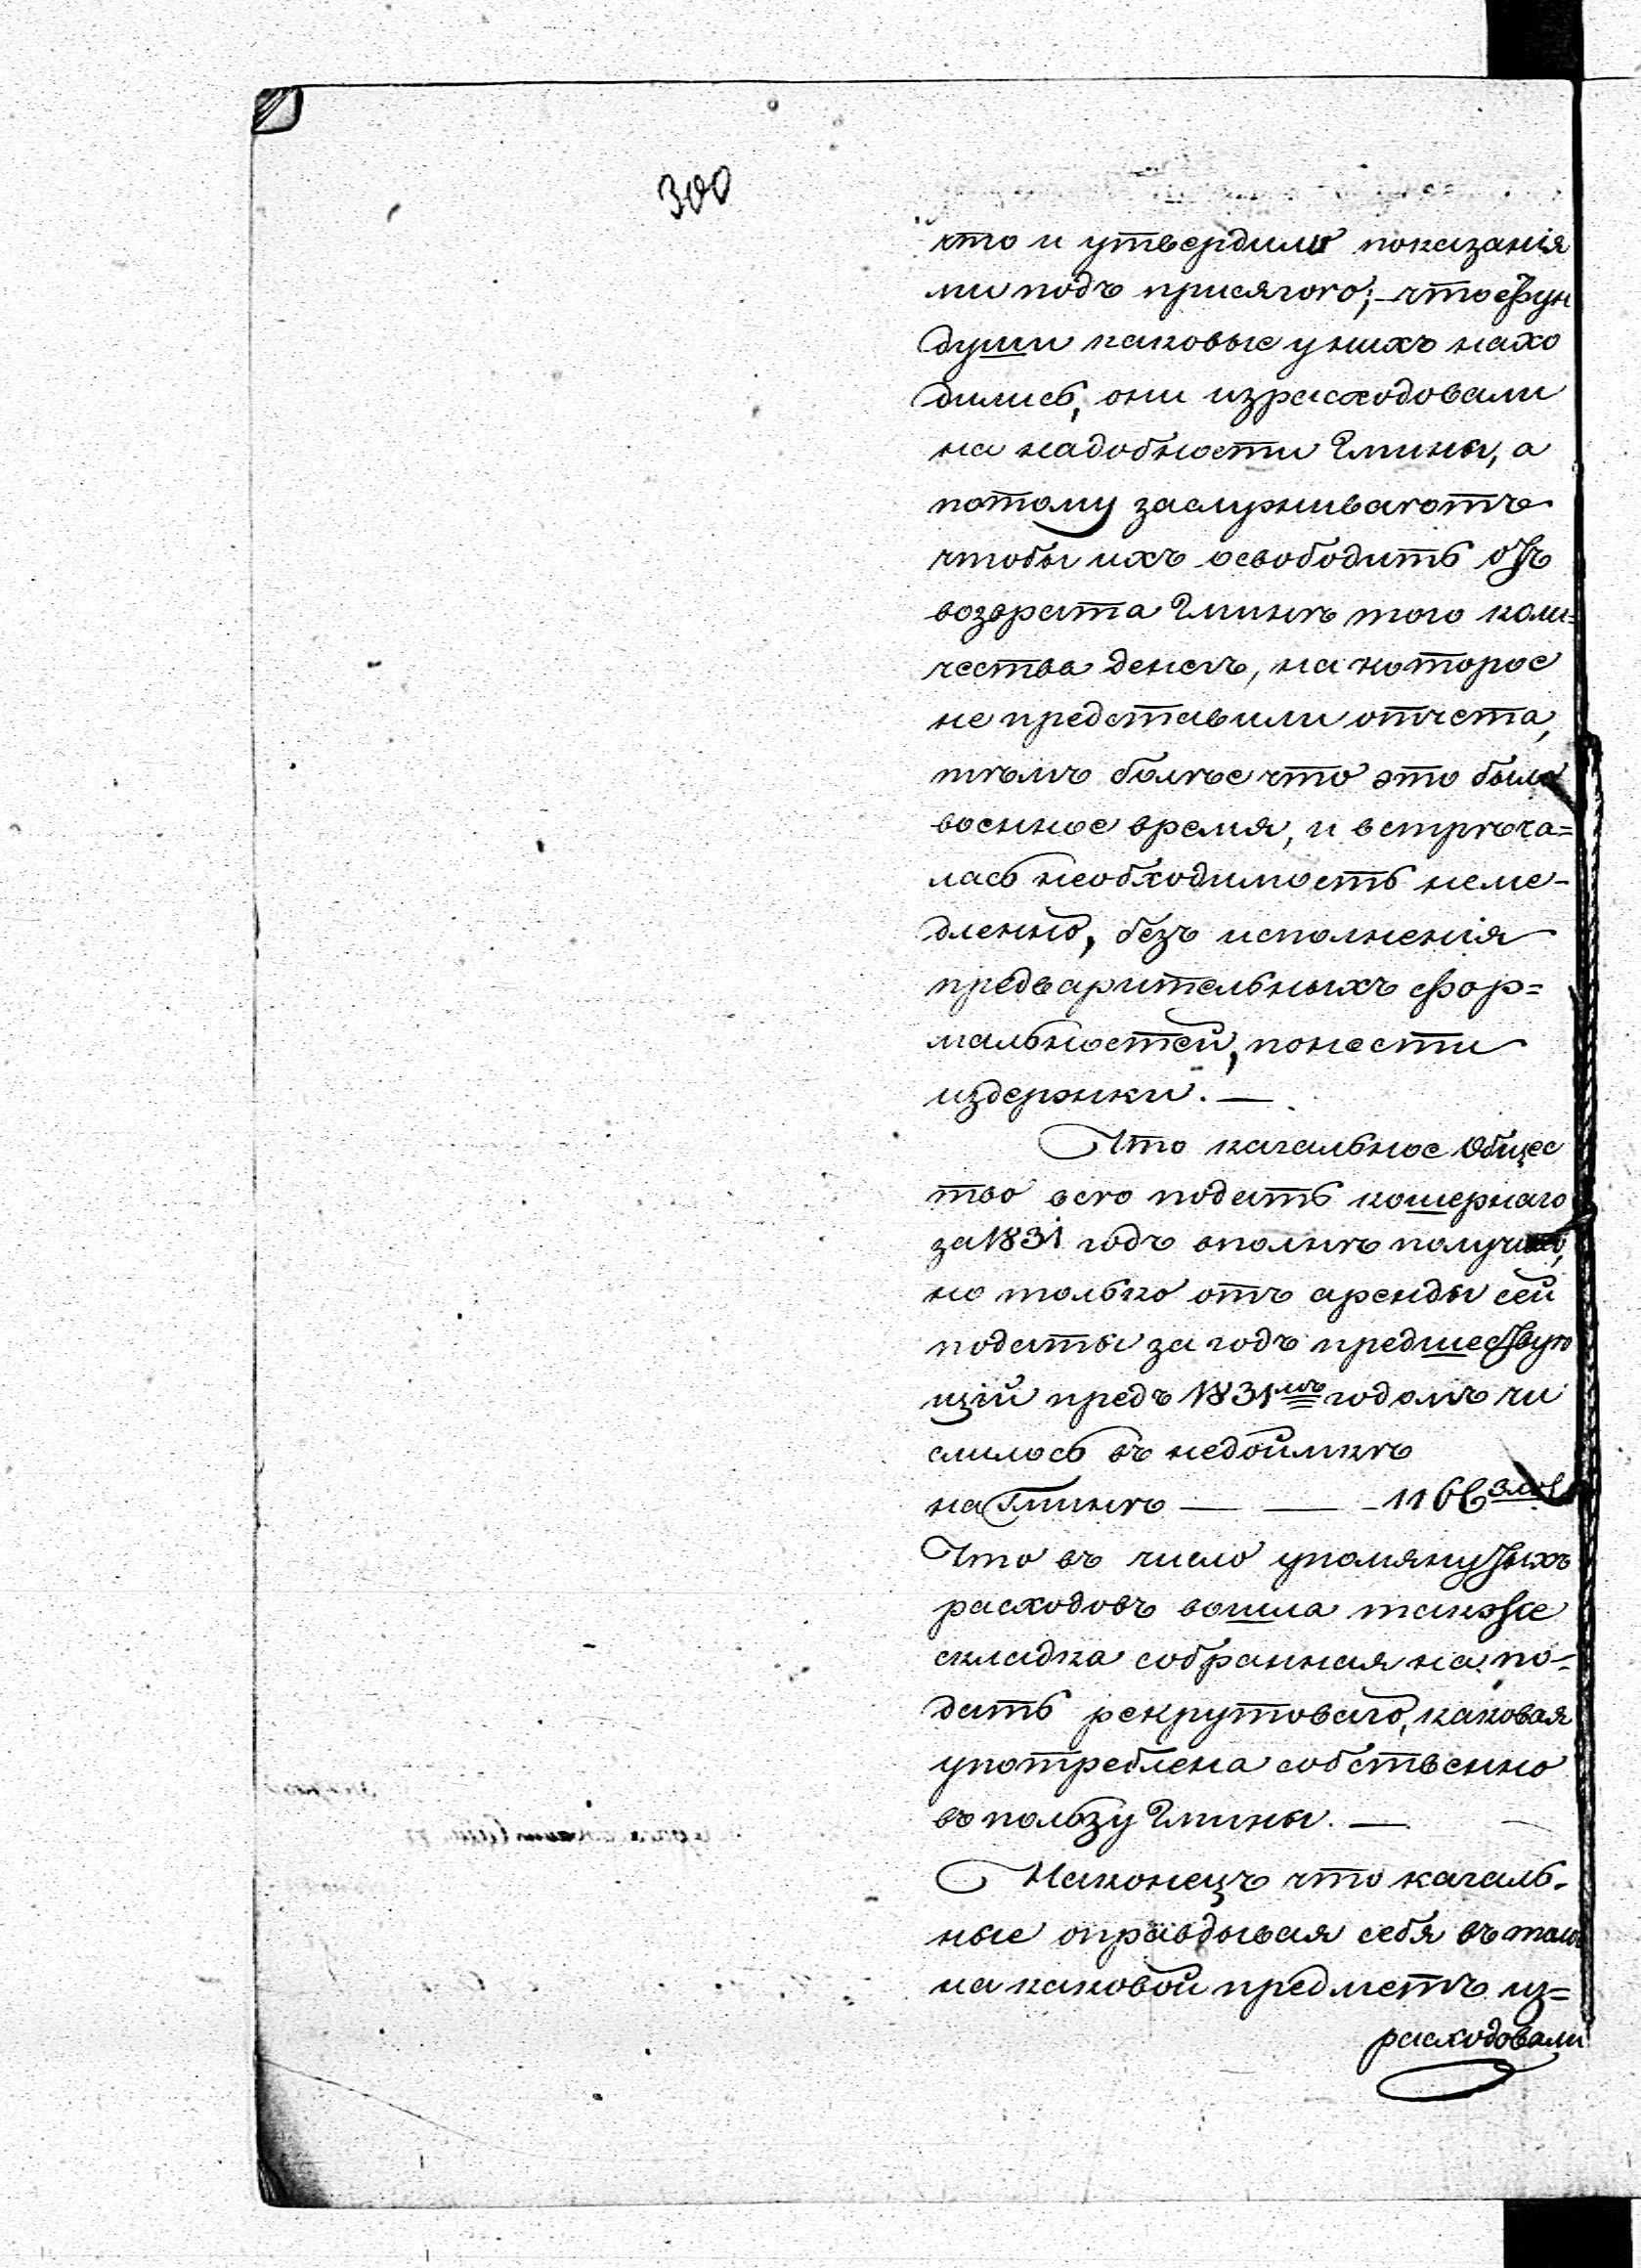 300
что и утвердили показанія
ми подъ присягою; – что фун
души каковые у нихъ нахо
дились, они израсходовали
на надобности Гмины, а
потому заслуживаютъ
чтобы ихъ освободить отъ
возврата Гминѣ того коли=
чества денегъ, на которое
не представили отчета,
тѣмъ болѣе что это было
военное время, и встрѣча=
лась необходимость неме-
дленно, безъ исполненія
предварительныхъ фор=
мальностей, понести
издержки. —
Что кагальное Общес
тво всю подать кошернаго
за 1831 годъ вполнѣ получило,
но только отъ аренды сей
подати за годъ предшествую
щій предъ 1831мъ годомъ чи
слилось въ недоимкѣ
на Гминѣ — — 1166 злот
Что въ число упомянутыхъ
расходовъ вошла также
складка собранная на по-
дать рекрутоваго, каковая
употреблена собственно
въ пользу Гмины. —
Наконецъ что кагаль-
ные оправдывая себя въ томъ
на каковой предметъ из=
расходовали